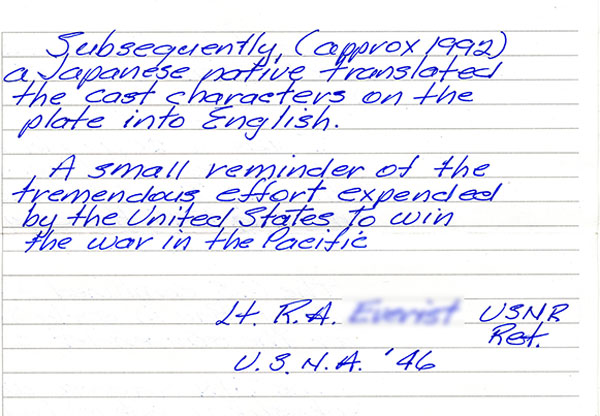 Subsequently, (approx 1992)
a Japanese native translated
the cast characters on the
plate into English.
A small reminder of the
tremendous effort expended
by the United States to win
the war in the Pacific
Lt. R.A. USNR
Ret.
U.S.N.A. '46